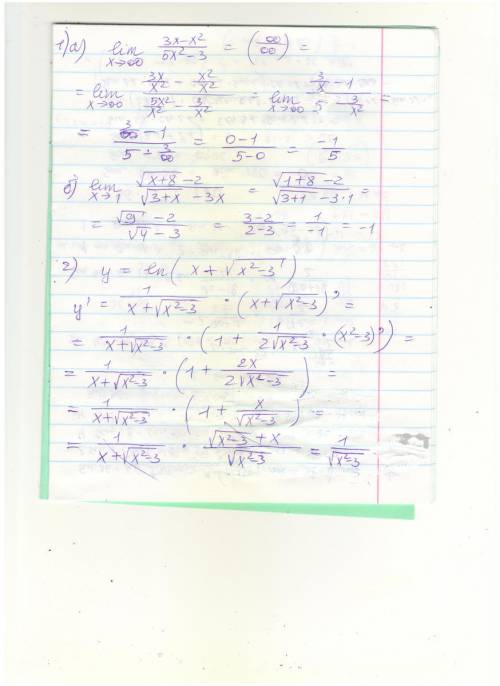 1) а) lim x→∞ (3x-x²)/(5x²-3) = (∞/∞) =
= lim x→∞ (3x/x² - x²/x²)/(5x²/x² - 3/x²) = lim x→∞ (3/x - 1)/(5 - 3/x²) =
= (3/∞ - 1)/(5 - 3/∞) = (0-1)/(5-0) = -1/5
б) lim x→1 (√(x+8) - 2)/(√(3+x) - 3x) = (√(1+8) - 2)/(√(3+1) - 3·1) =
= (√9 - 2)/(√4 - 3) = (3-2)/(2-3) = 1/-1 = -1
2) y = ln(x + √(x²-3))
y' = 1/(x+√(x²-3)) · (x+√(x²-3))' =
= 1/(x+√(x²-3)) · (1 + 1/(2√(x²-3)) · (x²-3)') =
= 1/(x+√(x²-3)) · (1 + 2x/(2√(x²-3))) =
= 1/(x+√(x²-3)) · (1 + x/√(x²-3)) =
= 1/(x+√(x²-3)) · (√(x²-3) + x)/√(x²-3) = 1/√(x²-3)